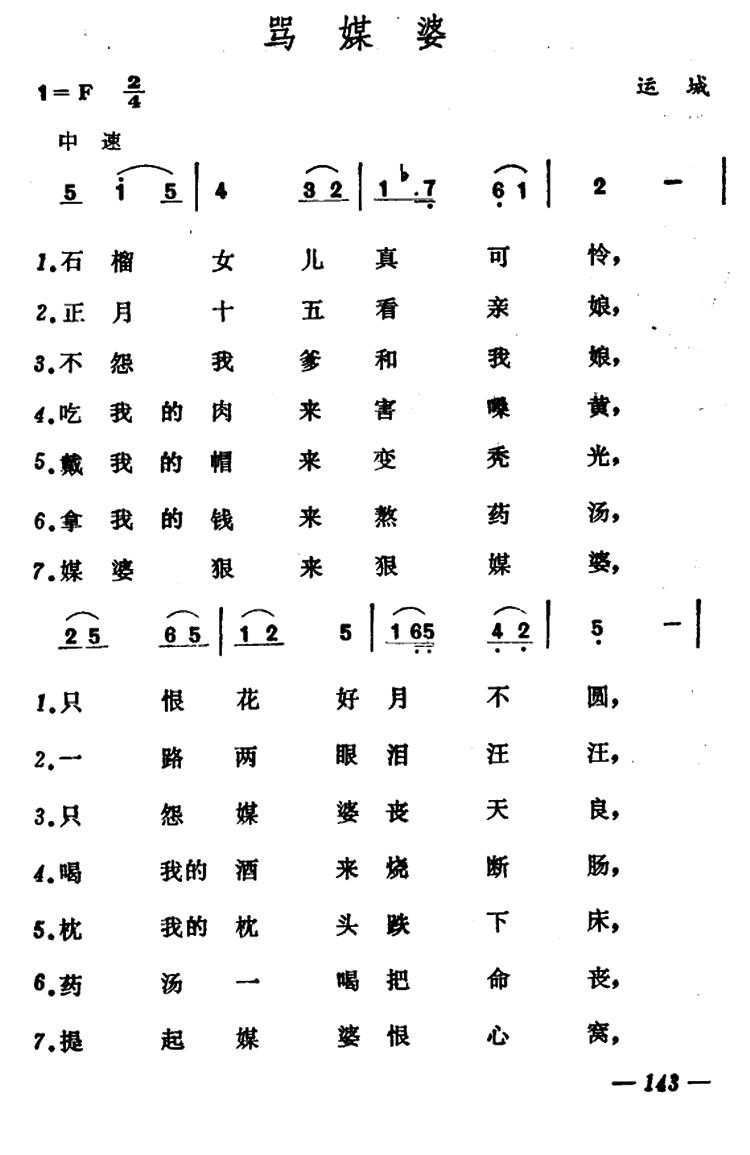 骂媒婆
1=F 2/4 运城
中速
5 i 5 | 4 3 2 | 1 ♭.7 6 1 | 2 — |
1.石榴女儿真可怜，
2.正月十五看亲娘，
3.不怨我爹和我娘，
4.吃我的肉来害嗓黄，
5.戴我的帽来变秃光，
6.拿我的钱来熬药汤，
7.媒婆狠来狠媒婆，
2 5 6 5 | 1 2 5 | 1 65 4 2 | 5 — |
1.只恨花好月不圆，
2.一路两眼泪汪汪，
3.只怨媒婆丧天良，
4.喝我的酒来烧断肠，
5.枕我的枕头跌下床，
6.药汤一喝把命丧，
7.提起媒婆恨心窝，
—143—